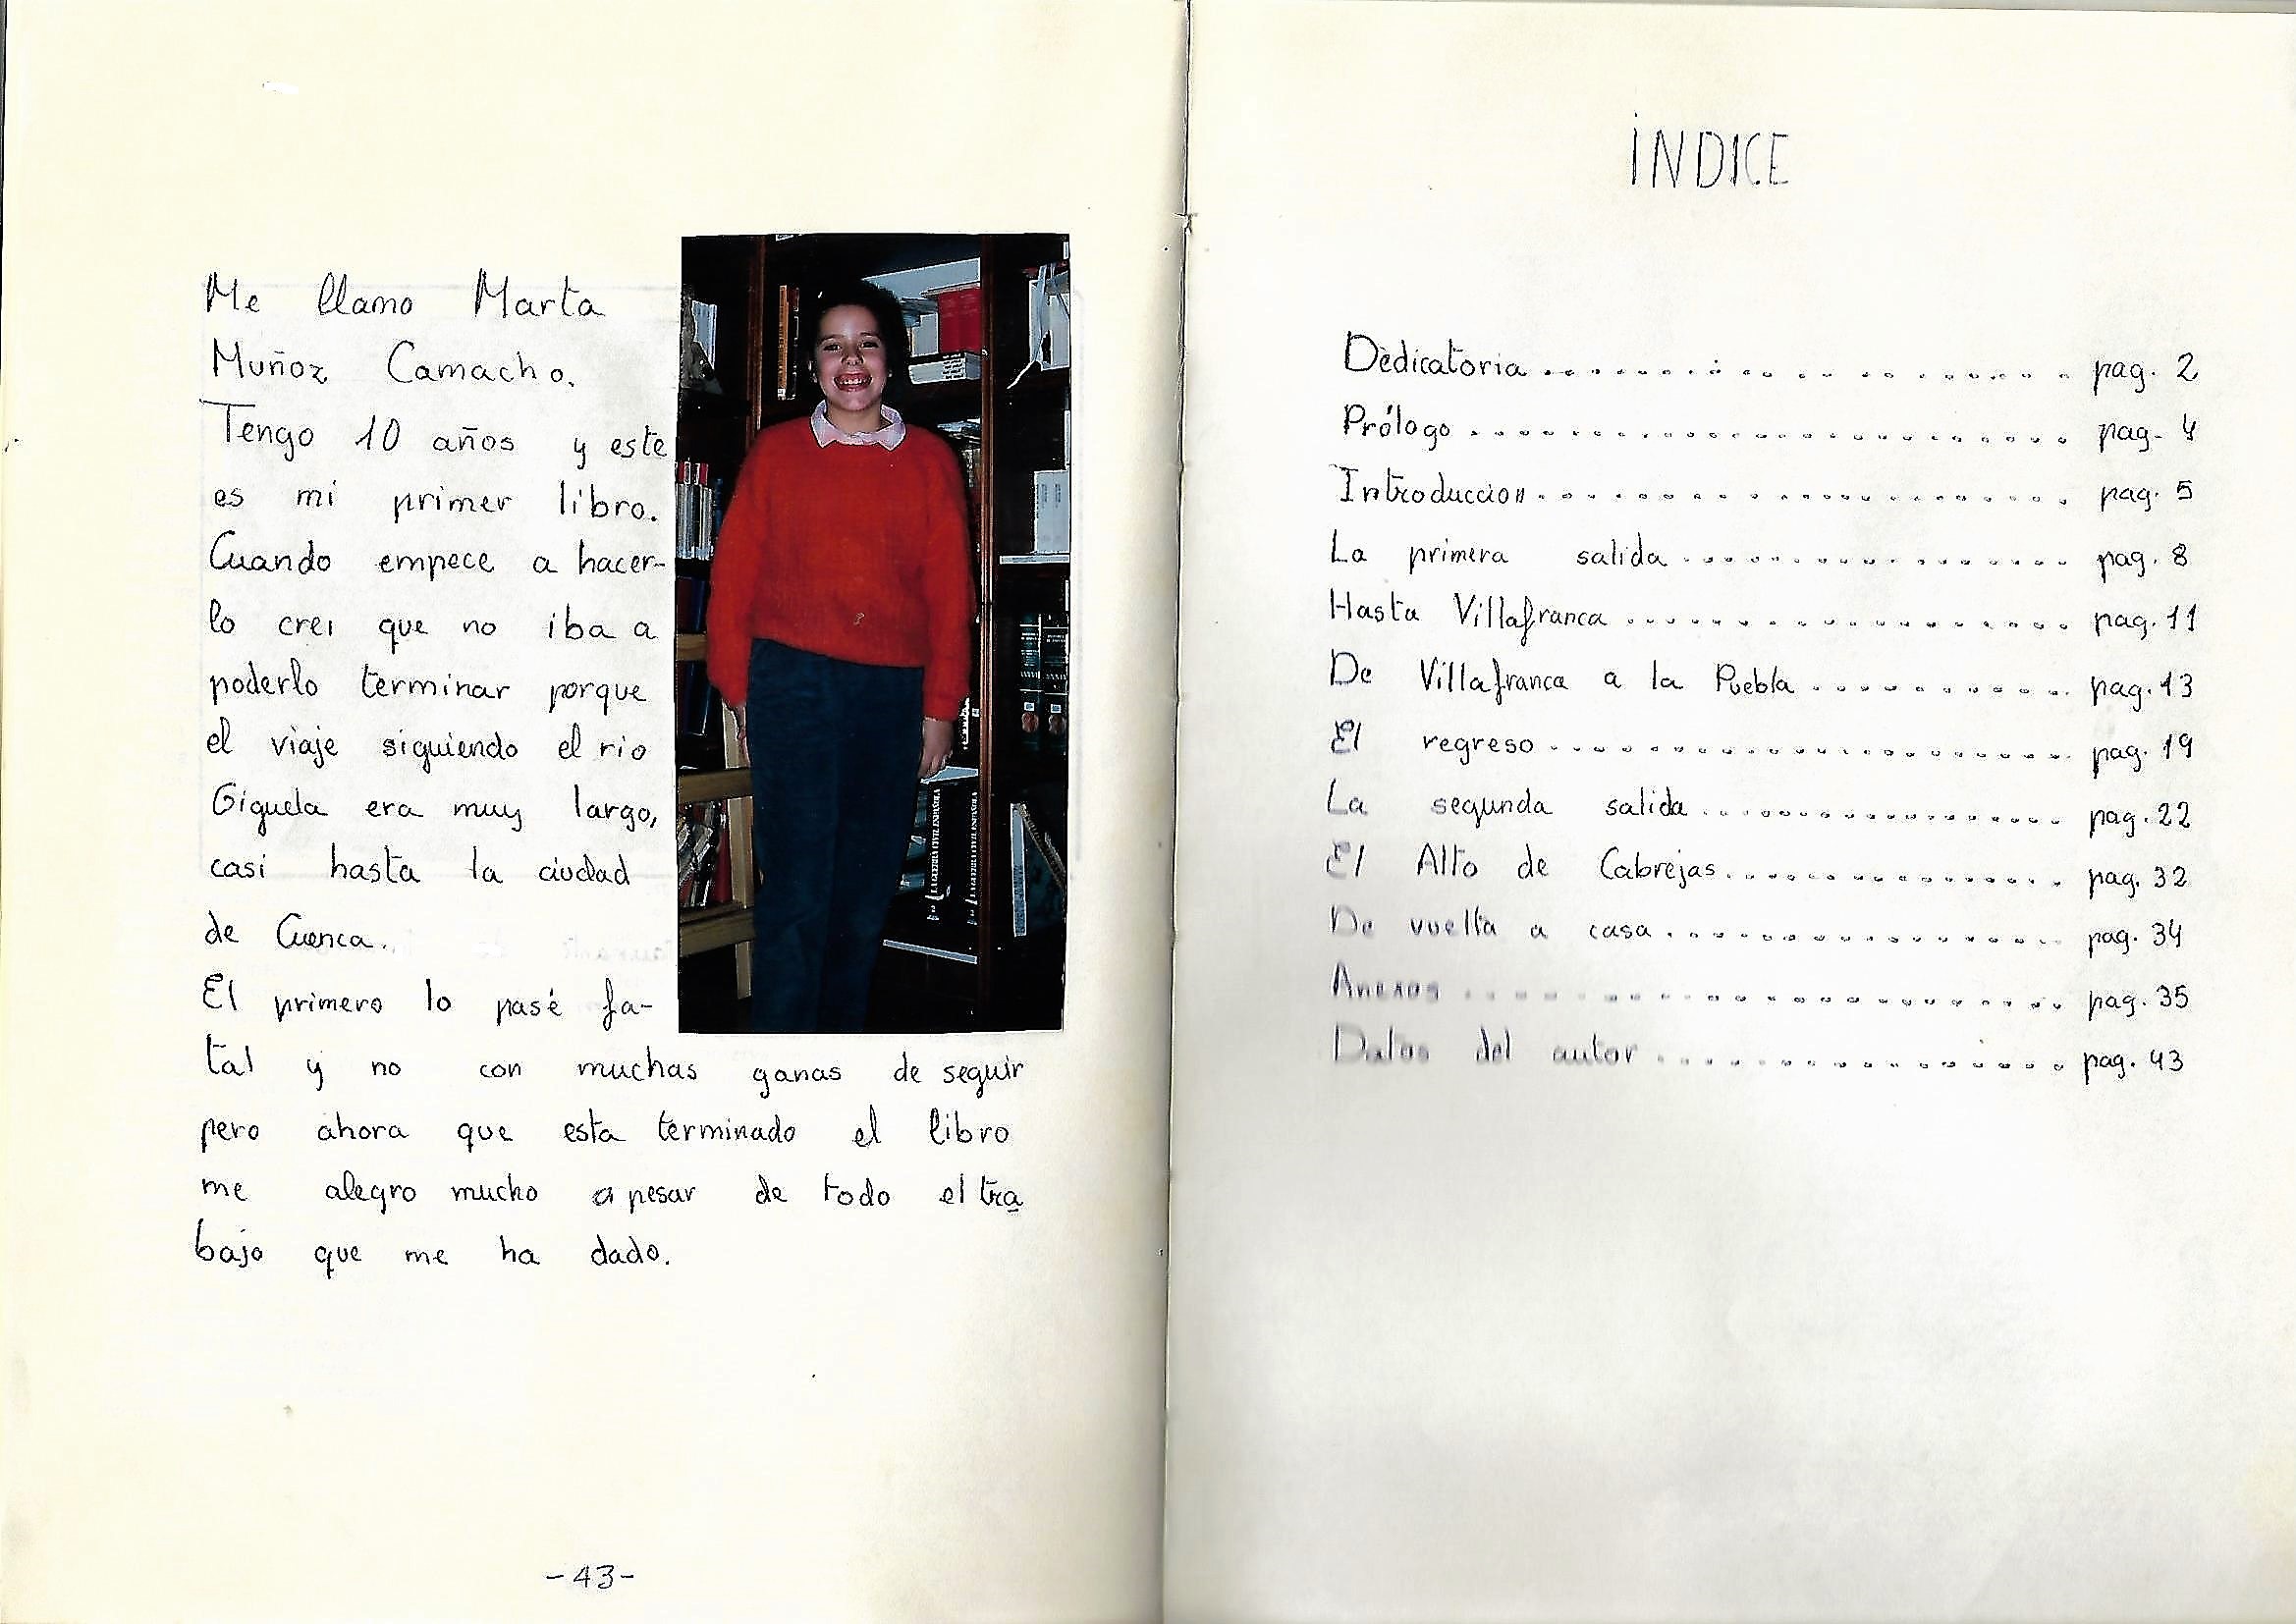 Me llamo Marta
Muñoz Camacho.
Tengo 10 años y este
es mi primer libro.
Cuando empece a hacer-
lo crei que no iba a
poderlo terminar porque
el viaje siguiendo el rio
Giguela era muy largo,
casi hasta la ciudad
de Cuenca.
El primero lo pasé fa-
tal y no con muchas ganas de seguir
pero ahora que esta terminado el libro
me alegro mucho a pesar de todo el tra
bajo que me ha dado.
-43-
LA GUERRA CIVIL ESPAÑOLA
LA GUERRA CIVIL ESPAÑOLA
ÍNDICE
Dedicatoria................ pag. 2
Prólogo................ pag. 4
Introduccion................ pag. 5
La primera salida................ pag. 8
Hasta Villafranca................ pag. 11
De Villafranca a la Puebla............ pag. 13
El regreso................ pag. 19
La segunda salida................ pag. 22
El Alto de Cabrejas................ pag. 32
De vuelta a casa................ pag. 34
Anexos................ pag. 35
Datos del autor................ pag. 43